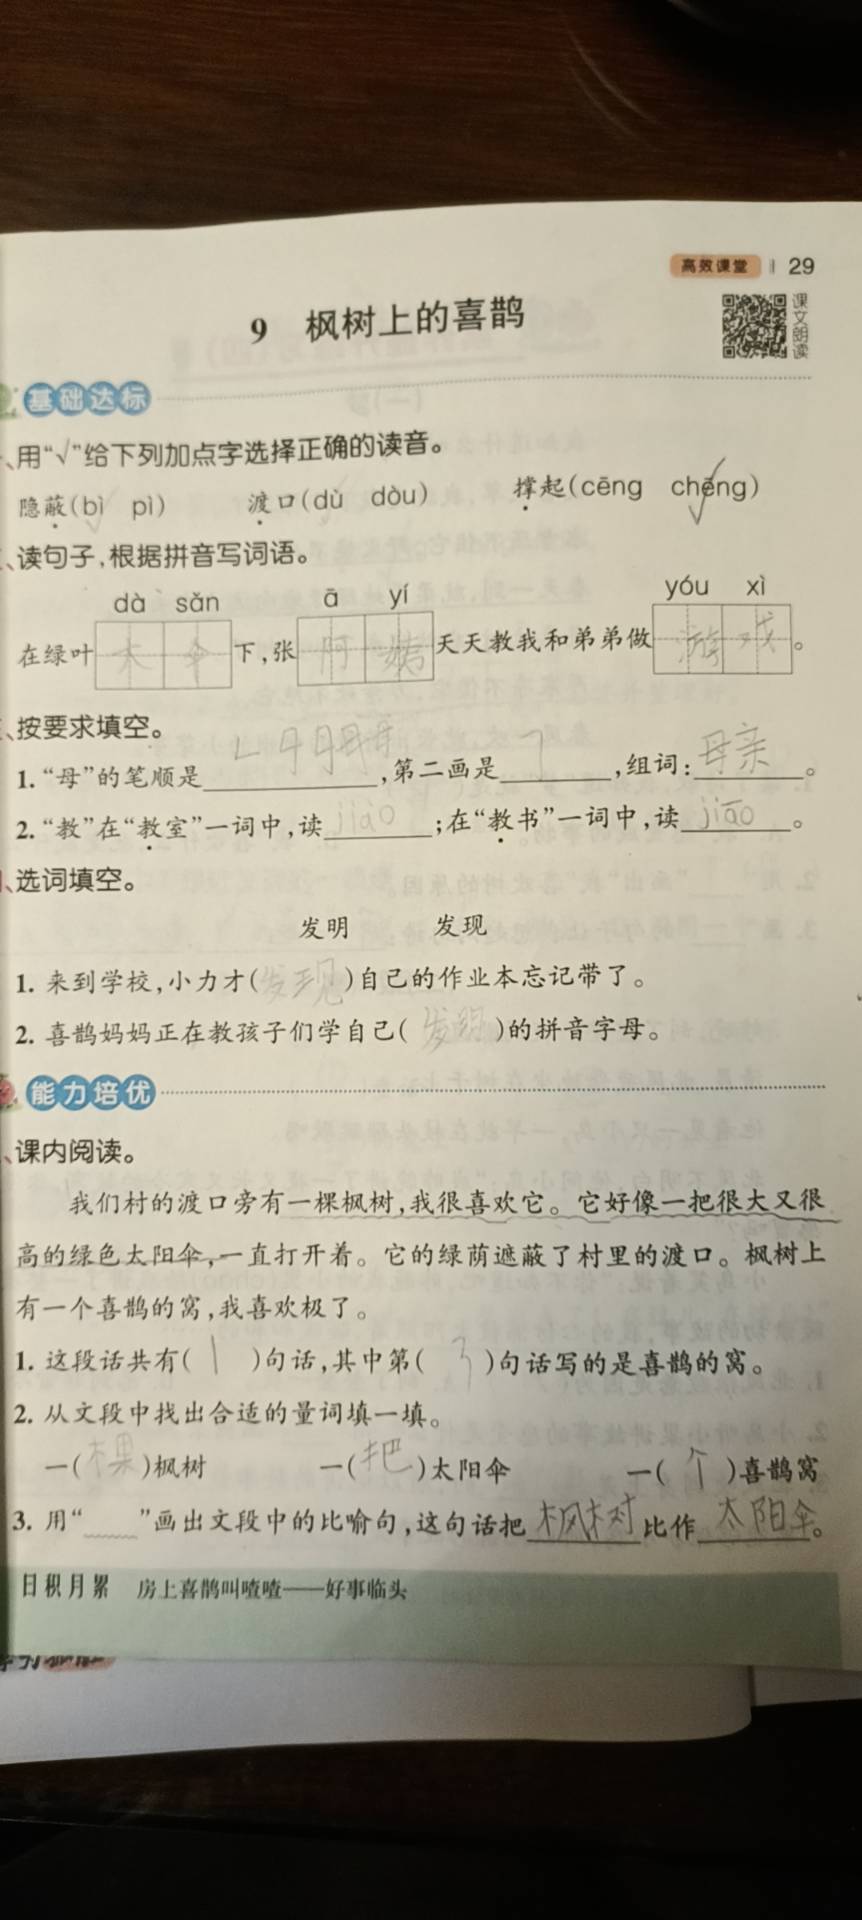 高效课堂 29
9 枫树上的喜鹊
课文朗读
基础达标
、用“√”给下列加点字选择正确的读音。
隐蔽(bì pì) 渡口(dù dòu) 撑起(cēng chēng)
、读句子,根据拼音写词语。
dà sǎn ā yí yóu xì
在绿叶大伞下,张阿姨天天教我和弟弟做游戏。
、按要求填空。
1. “母”的笔顺是,第二画是㇆,组词:母亲。
2. “教”在“教室”一词中,读jiào;在“教书”一词中,读jiāo。
、选词填空。
发明 发现
1. 来到学校,小力才(发现)自己的作业本忘记带了。
2. 喜鹊妈妈正在教孩子们学自己(发明)的拼音字母。
能力培优
、课内阅读。
我们村的渡口旁有一棵枫树,我很喜欢它。它好像一把很大又很
高的绿色太阳伞,一直打开着。它的绿荫遮蔽了村里的渡口。枫树上
有一个喜鹊的窝,我喜欢极了。
1. 这段话共有(1)句话,其中第(3)句话写的是喜鹊的窝。
2. 从文段中找出合适的量词填一填。
一(棵)枫树 一(把)太阳伞 一(个)喜鹊窝
3. 用“ ”画出文段中的比喻句,这句话把枫树比作太阳伞。
日积月累 房上喜鹊叫喳喳——好事临头